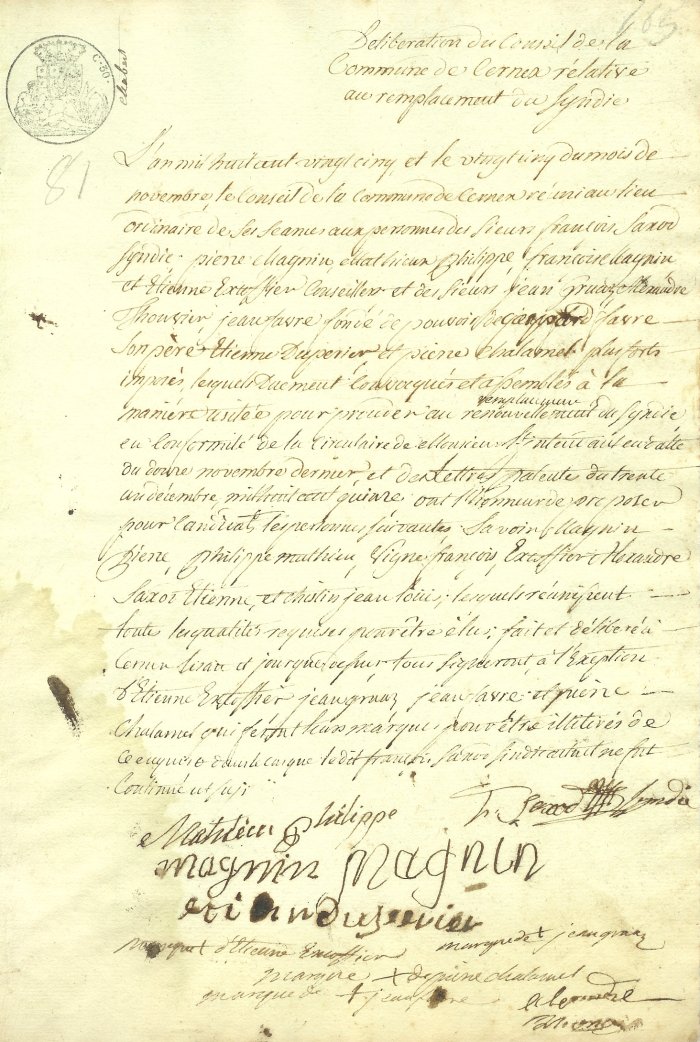 165
Deliberation du Conseil de la
Commune de Cernex rélative
au remplacement du Syndic
C. 50.
81
L'an mil huit cent vingt cinq et le vingt cinq du mois de
novembre, le Conseil de la Commune de Cernex réuni au lieu
ordinaire de ses séances aux personnes des sieurs françois Saxod
Syndic. pierre Magnin, Mathieux Philippe, françois Magnin
et Etienne Excoffier Conseillers et des sieurs jean gruaz Alexandre
Thouvier, jean favre fondé de pouvoir de favre
son père Etienne Duperier, et pierre Chalamel plus forts
imposés, lesquels Duement Convoqués et assemblés à la
remplacement
maniére usitée pour procéder au renouvellement du Syndic
en Conformité de la Circulaire de Monsieur l'Intendant en datte
du douze novembre dernier, et des Lettres patentes du trente
un décembre mil huit cent quinze ont l'honneur de proposer
pour Candidats les personnes suivantes Savoir Magnin
pierre, Philippe mathieu, Vigne françois, Excoffier Alexandre
Saxod Etienne, et jean loüis; lesquels réunissent
toute les qualités requises pour être élus; fait et déliberé à
Cernex lesdits et jour que dessus tous signeront, à l'Exeption
d'Etienne Excoffier jean gruaz jean favre et pierre
Chalamel qui feront leurs marques pour être illiterés de
ce enquis & dans le cas que le dit françois Saxod Sindic actuel ne fut
Continué
Saxod Syndic
Mathieu Philippe
magnin magnin
etiene duperier
marque + d'Etienne Excoffier marque de + jean gruaz
marque + de pierre chalamel
marque de + jean favre